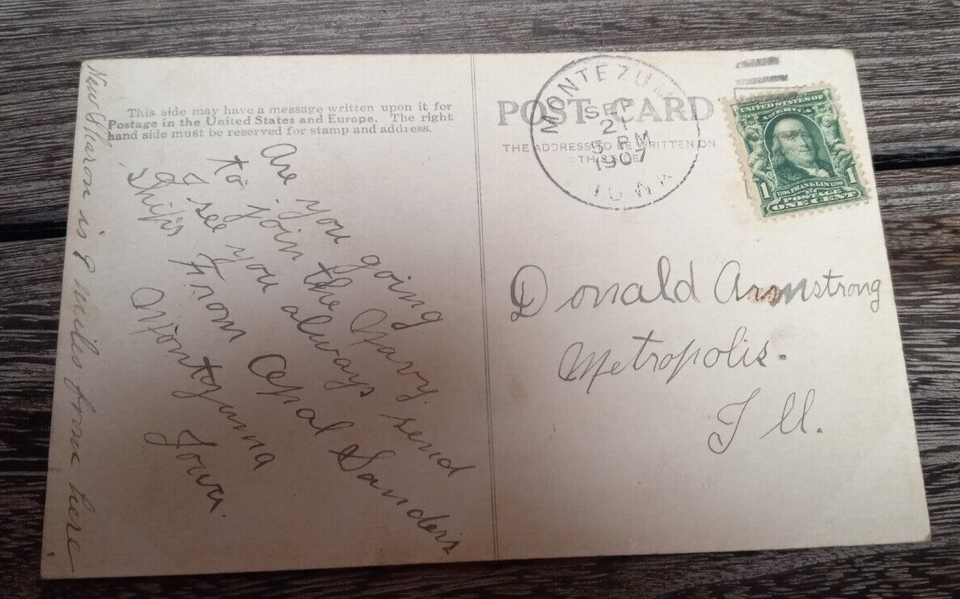 This side may have a message written upon it for
Postage in the United States and Europe. The right
hand side must be reserved for stamp and address.
New Sharon is 9 miles from here
Are you going
to join the Navy.
I see you always send
Ships From Opal Sanders
Montezuma
Iowa.
POST CARD
THE ADDRESS TO BE WRITTEN ON
THIS SIDE
MONTEZUMA
SEP
21
5 PM
1907
IOWA
UNITED STATES OF
AMERICA
1706 FRANKLIN 1790
1 POSTAGE 1
ONE CENT
Donald Armstrong
Metropolis.
Ill.